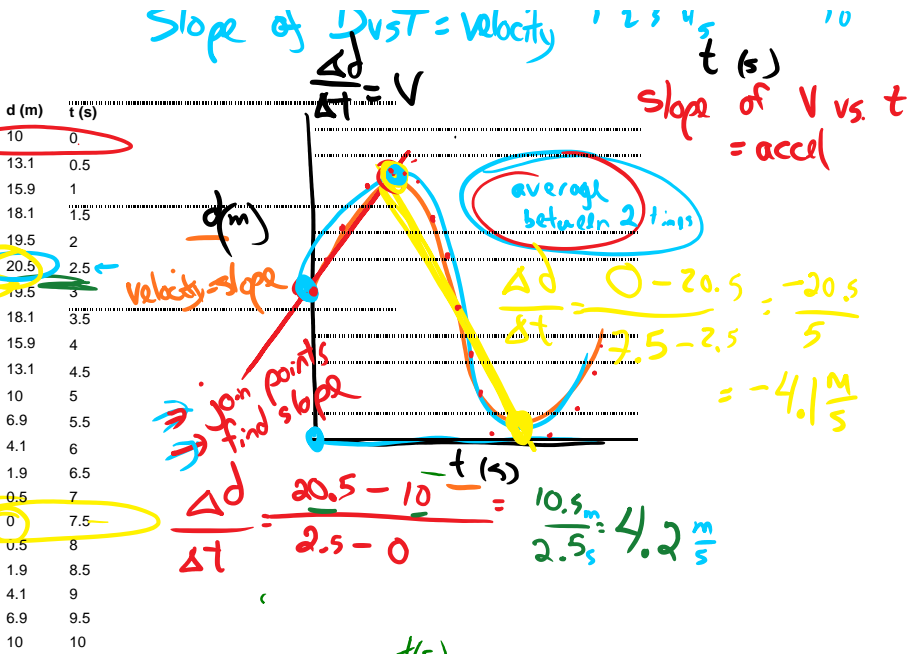 Slope of DvsT = Velocity
1 2 3 4 5 10
t (s)
Δd/Δt = V
Slope of V vs. t
= accel
d (m) t (s)
10 0
13.1 0.5
15.9 1
18.1 1.5
19.5 2
20.5 2.5
19.5 3
18.1 3.5
15.9 4
13.1 4.5
10 5
6.9 5.5
4.1 6
1.9 6.5
0.5 7
0 7.5
0.5 8
1.9 8.5
4.1 9
6.9 9.5
10 10
d(m)
velocity=slope
average
between 2 tings
Δd/Δt = 0 - 20.5 / 7.5 - 2.5 = -20.5 / 5
= -4.1 m/s
⇒ join points
→ find slope
t (s)
Δd/Δt = 20.5 - 10 / 2.5 - 0 = 10.5 m / 2.5 s = 4.2 m/s